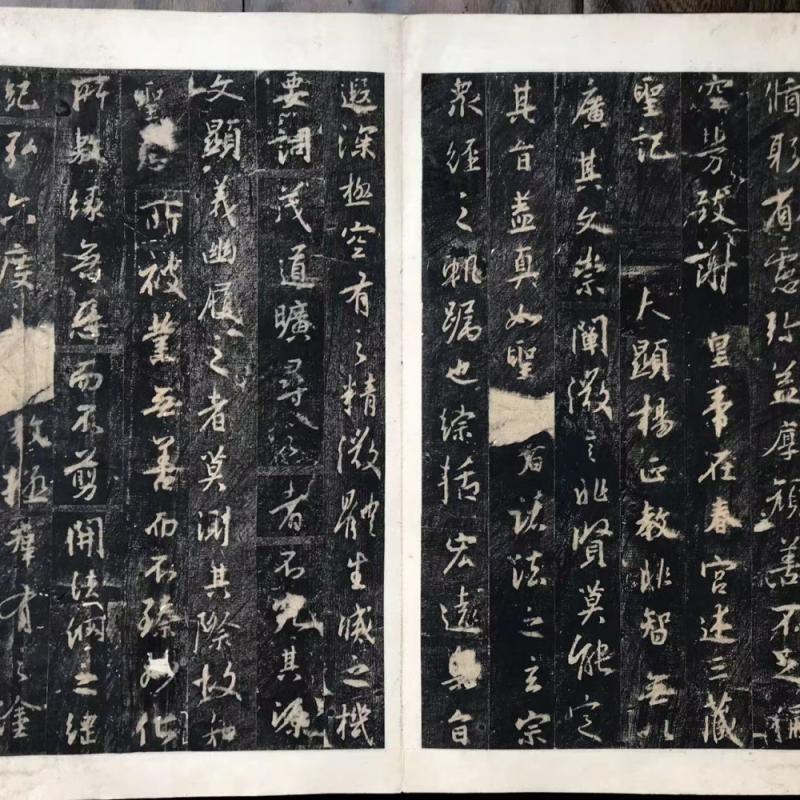 循躬省慮弥益厚顏善不足稱
空勞致謝 皇帝在春宮述三藏
聖記 夫顯揚正教非智無以
廣其文崇闡微言非賢莫能定
其旨蓋真如聖者諸法之玄宗
眾經之軌躅也綜括宏遠奧旨
遐深極空有之精微體生滅之機
要詞茂道曠尋之者不究其源
文顯義幽履之者莫測其際故知
聖慈所被業无善而不臻妙化
所敷緣無惡而不剪開法網之綱
紀弘六度教拯群有之塗